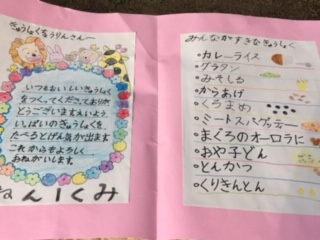 きゅうしょくをつくりんさんへ
いつもおいしいきゅうしょく
をつくってくださってありが
とうございますえいよう
いっぱいのきゅうしょくを
たべるとげん気が出ます
これからもよろしく
おねがいします。
ねん1くみ
みんながすきなきゅうしょく
・カレーライス
・グラタン
・みそしる
・からあげ
・くろまめ
・ミートスパゲッテー
・まぐろのオーロラに
・おや子どん
・とんかつ
・くりきんとん